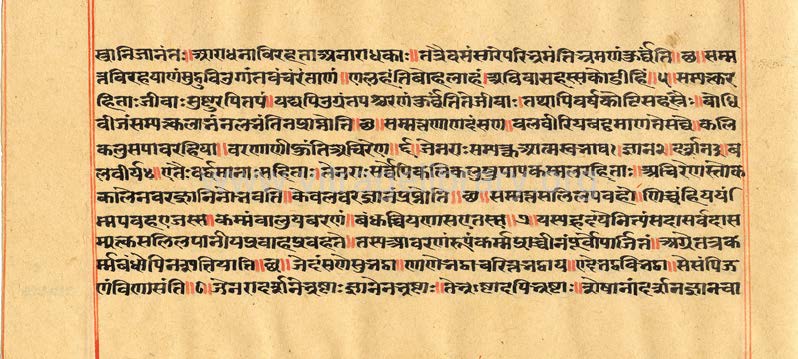 स्त्राणिजानंतः॥आराधनाविरहताअनाराधकाः॥तत्रैवसंसारेपरिभ्रमंतिभ्रमणंकुर्वंति॥छ॥सम्म
त्तविरहयाणंसुठुविउग्गंतवंचरंताणं॥णलहंतिबोहिलाहं॥अविवाससहस्सकोडीहिं॥५॥सम्यक्तर
हिताःजीवाःसुष्टुरपितपं॥यद्यपिउग्रंतपश्चरणंकुर्वंतितेजीवाः॥तथापिवर्षकोटिसहस्रैः॥बोधि
वीजंसम्यक्तलाभंनलभंतिनप्राप्नोति॥छ॥सम्मत्तणाणदंसण॥बलवीरियवड्ढमाणजेसव्वे॥कलि
कलुसपावरहिया॥वरणाणीहुंतिअचिरेण॥६॥जेनराःसम्यक्तआत्मस्वभाव१ज्ञान२दर्शन३ब
लवीर्य४एतैःवर्द्धमानाःसहिताः॥तेनराःसर्वेपिकलिकलुषपापकश्मलरहिताः॥अचिरेणस्तोक
कालेनवरज्ञानिनोभवंति॥केवलवरज्ञानंप्राप्नोति॥छ॥सम्मत्तसलिलपवहो॥णिच्चंहियए
म्मिपवट्टएजस्स॥कम्मंवालुयवरणं॥बंधुच्चियणासएतस्स॥७॥यस्यहृदयेनित्यंसदासर्वदास
म्यक्तसलिलपानीयप्रवाहप्रवहते॥तस्यआवरणंरूपंकर्मप्राचीनंपूर्वोपार्जितं॥अग्रेतनक
र्मबंधोपिनश्यतियाति॥छ॥जेदंसणेसुभट्ठा॥णाणेभट्ठाचरित्तभट्ठाय॥एदेभट्ठविभट्ठा॥सेसंपिज
णंविणासंति॥८॥जेनरादर्शनेभ्रष्टाःज्ञानेनभ्रष्टाः॥तेभ्रष्टादपिभ्रष्टाः॥शेषानांदर्शनज्ञानचा